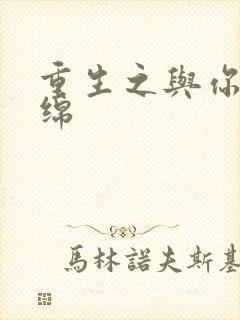 重生之與你
綿
馬林諾夫斯基